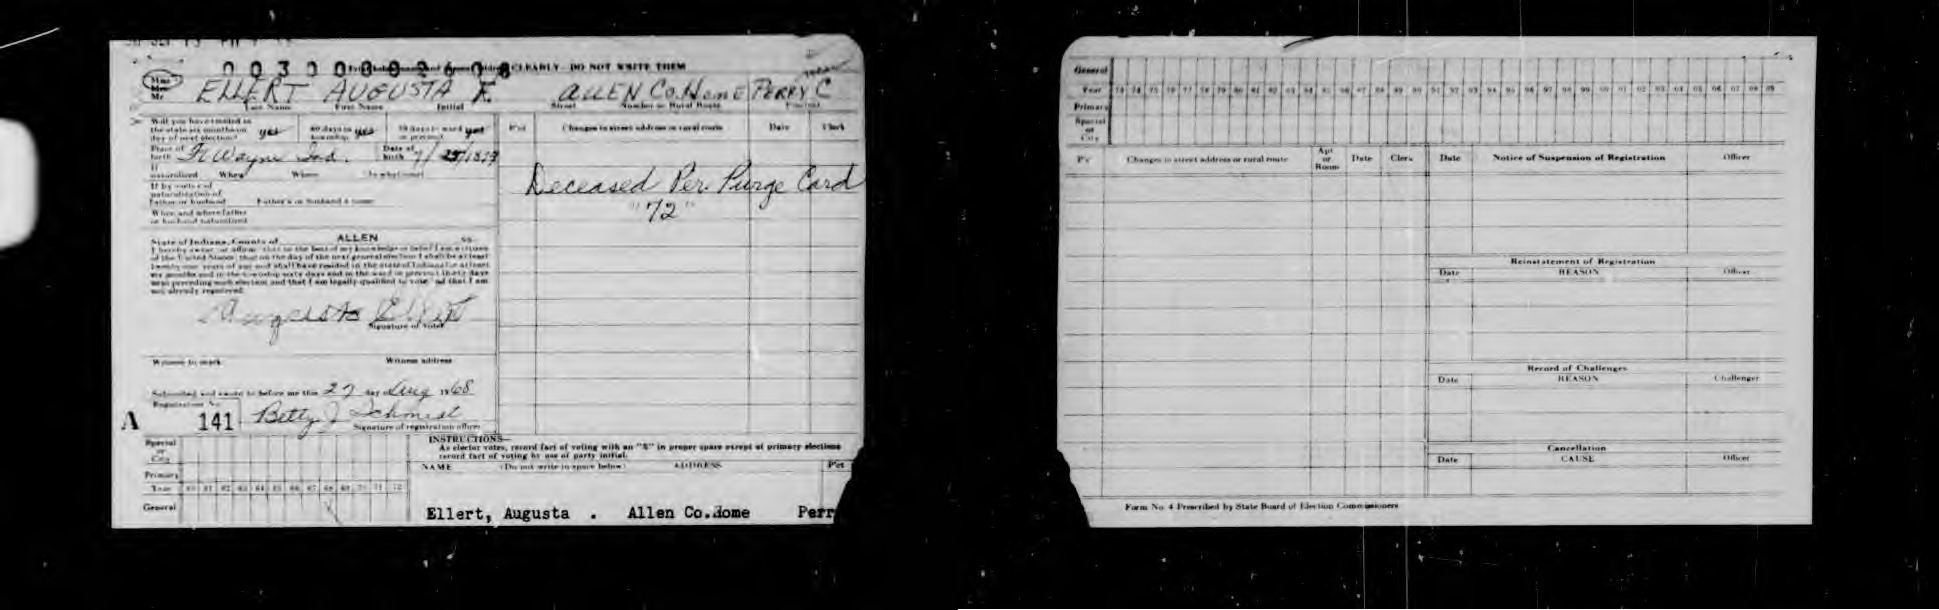 00300092608
CLEARLY - DO NOT WRITE THEM
Miss
Mrs
Mr
ELLERT AUGUSTA F. ALLEN Co. Home PERRY C
Last Name First Name Initial Street Number or Rural Route Precinct
Will you have resided in
the state six months on
day of next election? yes 60 days in township yes 30 days in ward or precinct yes
Place of birth Ft Wayne Ind. Date of birth 7/ /18
If naturalized When Where
If by virtue of
naturalization of
Father or husband Father's or husband's name
When and where father
or husband naturalized
P'ct Changes in street address or rural route Date Clerk
Deceased Per. Purge Card
"72"
State of Indiana, County of ALLEN ss.
I hereby swear or affirm that to the best of my knowledge or belief I am a citizen
of the United States; that on the day of the next general election I shall be at least
twenty-one years of age and shall have resided in the state of Indiana for at least
six months and in the township sixty days and in the ward or precinct thirty days
next preceding such election and that I am legally qualified to vote and that I am
not already registered.
Augusta Ellert
Signature of Voter
Witness to mark Witness address
Subscribed and sworn to before me this 27 day of Aug 1968
Registration No.
A 141 Betty J Schmidt
Signature of registration officer
INSTRUCTIONS—
As elector votes, record fact of voting with an "X" in proper space except at primary elections
record fact of voting by use of party initial.
Special
or
City
Primary
Year 60 61 62 63 64 65 66 67 68 69 70 71 72
General
NAME (Do not write in space below) ADDRESS P'ct
Ellert, Augusta . Allen Co.Home Perr
General
Year 73 74 75 76 77 78 79 80 81 82 83 84 85 86 87 88 89 90 91 92 93 94 95 96 97 98 99 00 01 02 03 04 05 06 07 08 09
Primary
Special
or
City
P'ct Changes in street address or rural route Apt or Room Date Clerk Date Notice of Suspension of Registration Officer
Reinstatement of Registration
Date REASON Officer
Record of Challenges
Date REASON Challenger
Cancellation
Date CAUSE Officer
Form No. 4 Prescribed by State Board of Election Commissioners